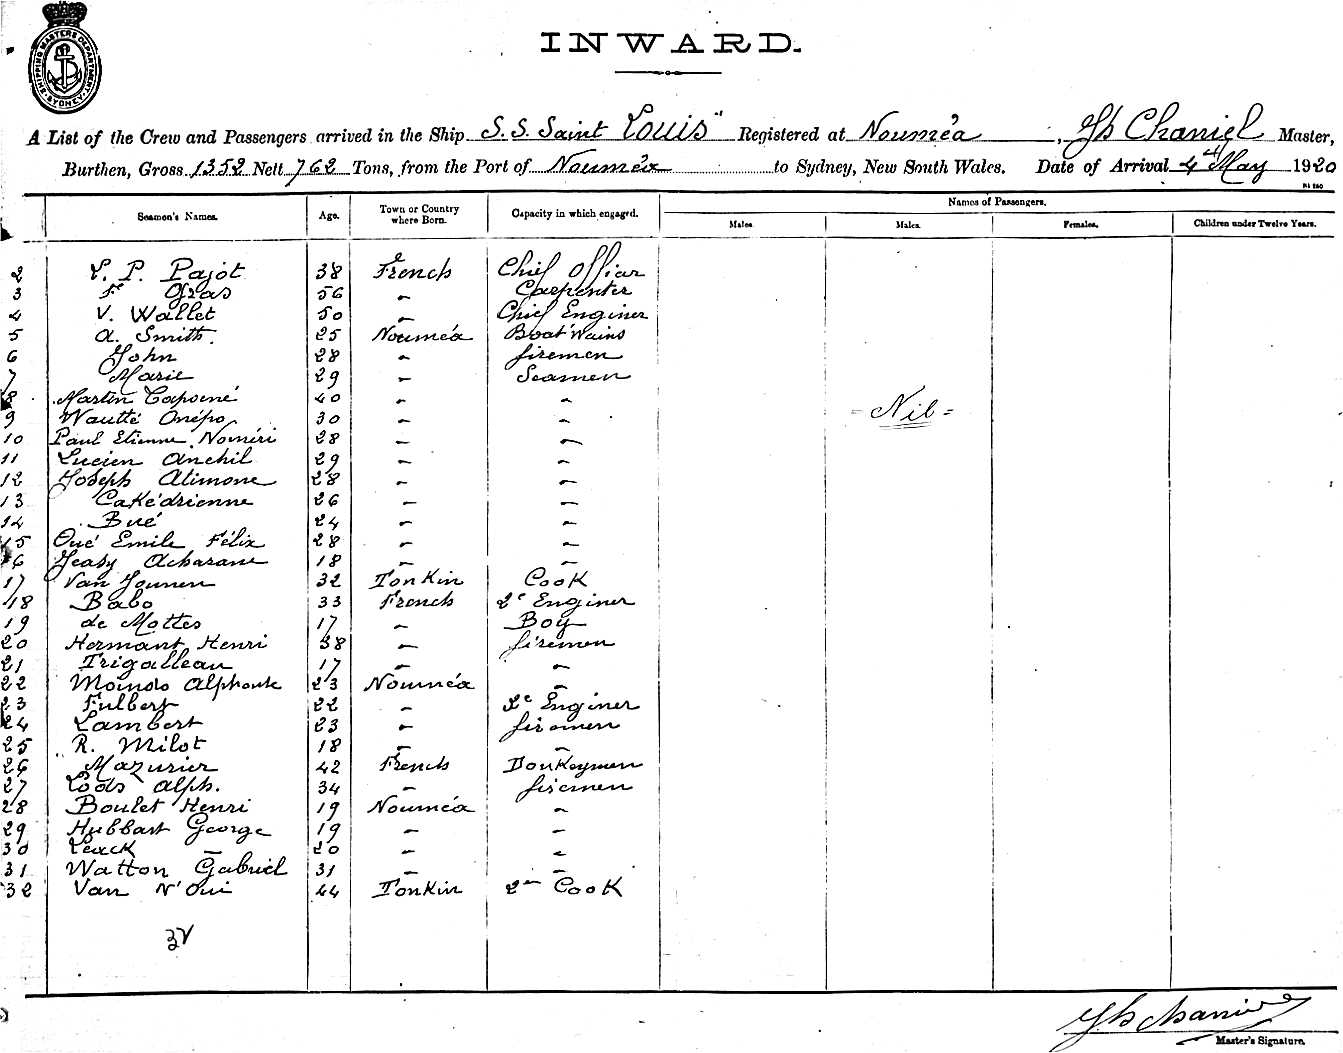 SHIPPING MASTERS DEPARTMENT SYDNEY
INWARD.
A List of the Crew and Passengers arrived in the Ship S.S. Saint Louis" Registered at Nouméa, Jh Chaniel Master,
Burthen, Gross 1352 Nett 762 Tons, from the Port of Nouméa to Sydney, New South Wales. Date of Arrival 4th May 1920
Seamen's Names. Age. Town or Country where Born. Capacity in which engaged. Names of Passengers.
Males Males. Females. Children under Twelve Years.
2 L. P. Pajot 38 French Chief Officer
3 F Gras 56 " Carpenter
4 V. Wallet 50 " Chief Enginer
5 A. Smith. 25 Nouméa Boat'Wains
6 John 28 " firemen
7 Marie 29 " Seamen
8 Martin Capoené 40 " "
9 Wautté Onépo 30 " "
= Nil =
10 Paul Etienne Noméri 28 " "
11 Lucien Anchil 29 " "
12 Joseph Alimone 28 " "
13 Cakédrienne 26 " "
14 Bué 24 " "
15 Oué Emile Félix 28 " "
16 Acharane 18 " "
17 Van 32 Tonkin Cook
18 Babo 33 French 2e Enginer
19 de Mottes 17 " Boy
20 Hermant Henri 38 " firemen
21 Trigalleau 17 " "
22 Moindo Alphonse 23 Nouméa "
23 Fulbert 22 " 2e Enginer
24 Lambert 23 " firemen
25 R. Milot 18 " "
26 Mazurier 42 French Donkeymen
27 Lods alph. 34 " firemen
28 Boulet Henri 19 Nouméa "
29 Hubbart George 19 " "
30 Leack 20 " "
31 Watton Gabriel 31 " "
32 Van N'Oui 44 Tonkin 2me Cook
32
Jh Chaniel
Master's Signature.